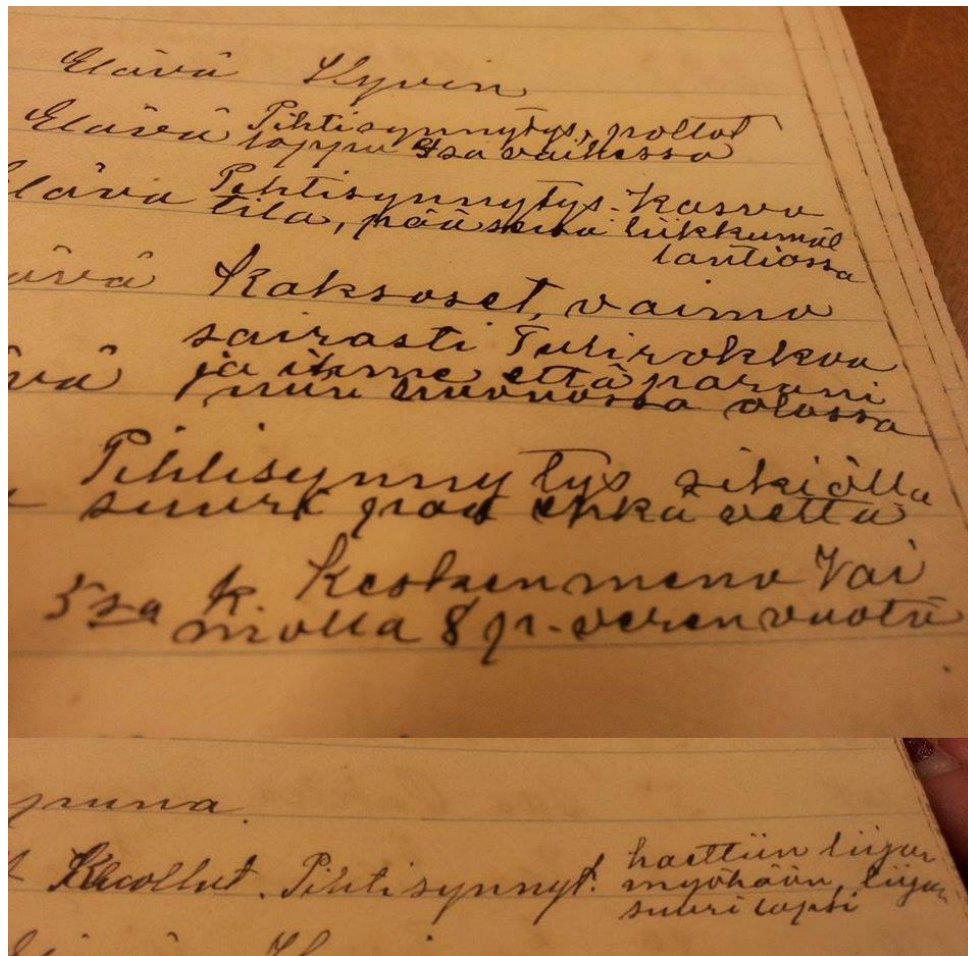 Elävä Hyvin
Elävä Pihtisynnytys, poltot
loppu 4sä vaiheessa
lävä Pihtisynnytys. Kasvo
tila, pää seiso liikkumat
lantiossa
ävä Kaksoset, vaimo
sairasti Tulirokkoa
vä ja ihme että parani
niin huonossa olossa
Pihtisynnytys sikiöllä
suuri pää ehkä vettä
5sä k. Keskenmeno Vai
molla 8 p. verenvuotö
puna.
Kuollut. Pihtisynnyt. haettiin liijan
myöhään, liijan
suuri lapsi